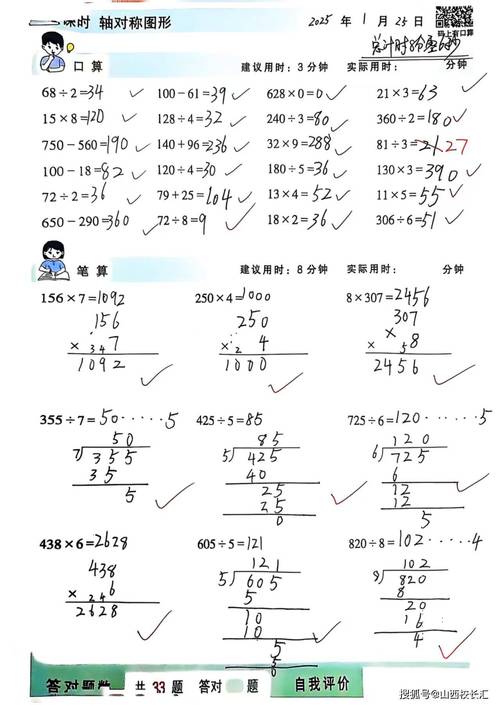 课时 轴对称图形 2025 年 1 月 25 日
码上有口算
总计时8分
口算 建议用时：3 分钟 实际用时： 分钟
68÷2=34 100-61=39 628×0=0 21×3=63
15×8=120 128÷4=32 240÷3=80 360÷2=180
750-560=190 140+96=236 32×9=288 81÷3=21 27
100-18=82 120÷4=30 180÷5=36 130×3=390
72÷2=36 79+25=104 13×4=52 11×5=55
650-290=360 72÷8=9 18×2=36 306÷6=51
笔算 建议用时：8 分钟 实际用时： 分钟
156×7=1092 250×4=1000 8×307=2456
156 250 307
× 3 4 7 × 2 4 × 5 8
1092 1000 2456
355÷7=50······5 425÷5=85 725÷6=120······5
50 85 120
7 355 5 425 6 725
35 40 6
5 25 12
25 12
0 5
438×6=2628 605÷5=121 820÷8=102······4
438 121 102
× 2 4 6 5 605 8 820
2628 5 8
10 20
10 16
5 4
5
0
答对题数 共 33 题 答对 题 自我评价
搜狐号@山西校长汇